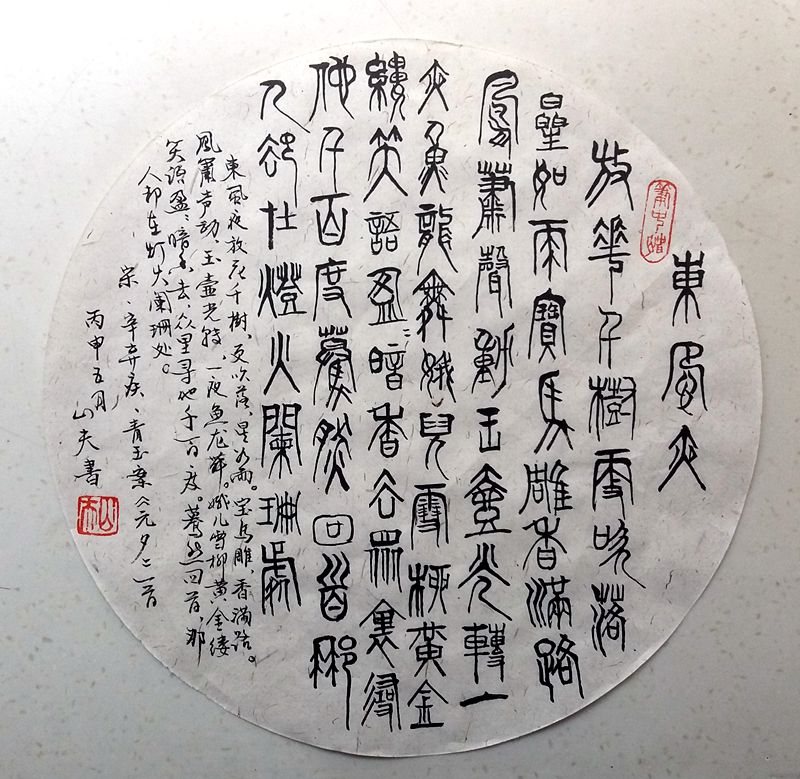 東風夜
放華千樹更吹落
星如雨寶馬雕香滿路
鳳簫聲動玉壺光轉一
夜魚龍舞娥兒雪柳黃金
縷笑語盈〻暗香去眾裏尋
他千百度驀然回首那
人卻在燈火闌珊處
東風夜放花千樹、更吹落、星如雨。宝马雕香满路。
凤箫声动、玉壶光转、一夜鱼龙舞。娥儿雪柳黄金缕
笑语盈〻暗香去、众里寻他千百度。蓦然回首、那
人却在灯火阑珊处。
宋、辛弃疾、青玉案《元夕》一首
丙申五月
山夫書
山夫